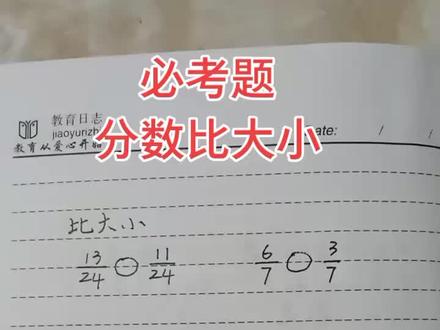 必考题
教育日志
jiaoyurizhi
分数比大小
Date: / /
教育从爱心开始
比大小
13/24 ○ 11/24 6/7 ○ 3/7